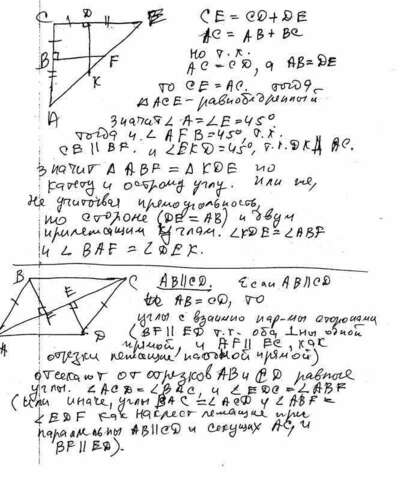 C D E
CE = CD + DE
AC = AB + BC
но т.к.
AC = CD, а AB = DE
B F
K
то CE = AC. тогда
△ACE - равнобедренный
A
значит ∠A = ∠E = 45°
тогда и ∠AFB = 45°, т.к.
CE ∥ BF. и ∠EKD = 45°, т.к. DK ∥ AC.
значит △ABF = △KDE по
катету и острому углу. или же,
не учитывая прямоугольность,
по стороне (DE = AB) и двум
прилежащим углам. ∠KDE = ∠ABF
и ∠BAF = ∠DEK.
B C
AB ∥ CD. Если AB ∥ CD
E
AB = CD, то
углы с взаимно пар-ми сторонами
F
(BF ∥ ED т.к. оба ⊥ны одной
A D
прямой, и AF ∥ EC, как
отрезки лежащие на одной прямой)
отсекают от отрезков AB и CD равные
углы. ∠ACD = ∠BAC, и ∠EDC = ∠ABF
(или иначе, углы BAC = ∠ACD и ∠ABF =
∠EDF как накрест лежащие при
AB ∥ CD и секущих AC, и
BF ∥ ED).